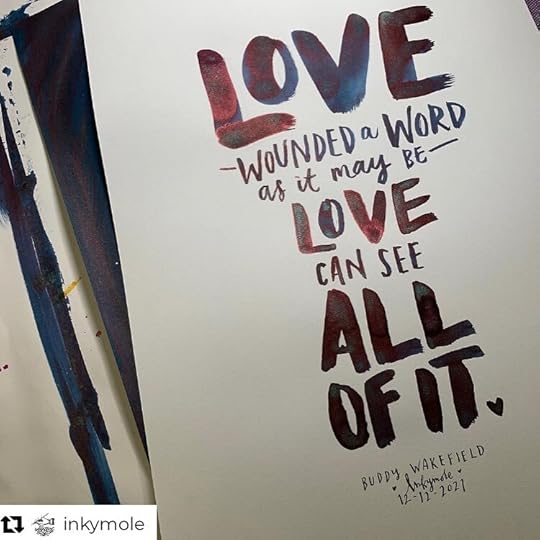 LOVE
-WOUNDED a WORD
as it may BE-
LOVE
CAN SEE
ALL
OF IT
BUDDY WAKEFIELD
Inkymole
12-12-2021
inkymole